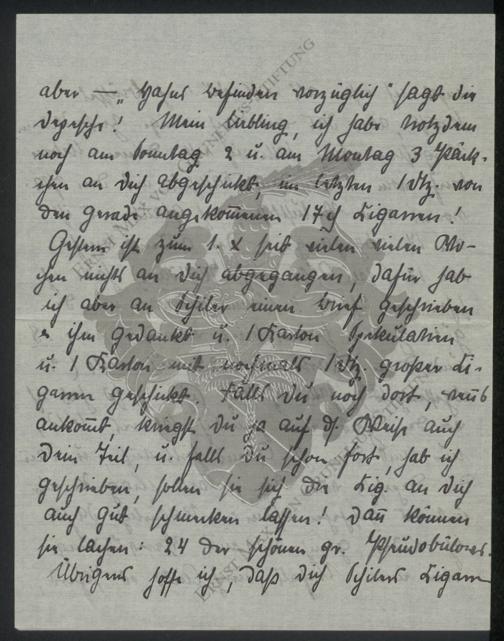 aber — „Hahns befinden vorzüglich" sagt die
Depesche! Mein Liebling, ich habe trotzdem
noch am Sonntag 2 u. am Montag 3 Päck-
chen an Dich abgeschickt, im letzten 1 Dtz. von
den gerade angekom̅enen Zigarren!
Gestern ist zum 1. x seit vielen vielen Wo-
chen nichts an Dich abgegangen, dafür hab
ich aber an Schiler einen Brief geschrieben
ihm gedankt u. 1 Karton Spekulatien
u. 1 Karton mit nochmals 1 Dtz. großer Zi-
garren geschickt. Falls Du noch dort,
ankom̅t, kriegst Du ja auf d. Weise auch
Dein Teil, u. falls Du schon fort, hab ich
geschrieben, sollen sie sich die Zig. an Dich
auch gut schmecken lassen! Dan̅ können
sie lachen: 24 der schönen gr.
Übrigens hoffe ich, daß Dich Schilers Zigarren
ERNST MAX VON STIFTUNG